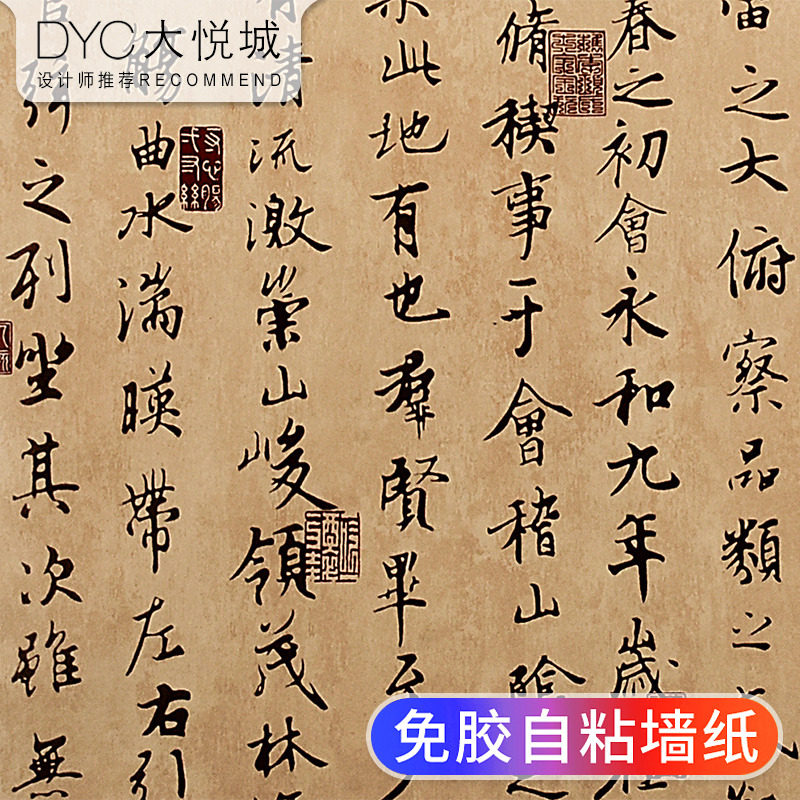 DYC大悦城
设计师推荐RECOMMEND
之大俯察品類之
春之初會永和九年歲在
脩稧事于會稽山陰之
此地有也羣賢畢至
清流激崇山峻領茂林
觴曲水湍暎帶左右引
之列坐其次雖無
免胶自粘墙纸